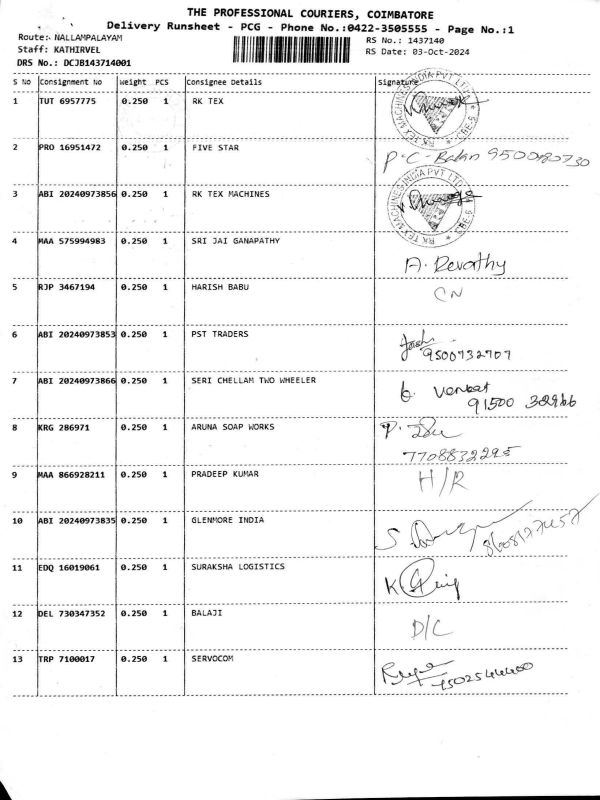 THE PROFESSIONAL COURIERS, COIMBATORE
Delivery Runsheet - PCG - Phone No.:0422-3505555 - Page No.:1
Route:- NALLAMPALAYAM
RS No.: 1437140
Staff: KATHIRVEL
RS Date: 03-Oct-2024
DRS No.: DCJB143714001
S No Consignment No Weight PCS Consignee Details Signature
1 TUT 6957775 0.250 1 RK TEX
2 PRO 16951472 0.250 1 FIVE STAR P.C- Balan
3 ABI 20240973856 0.250 1 RK TEX MACHINES
4 MAA 575994983 0.250 1 SRI JAI GANAPATHY A. Revathy
5 RJP 3467194 0.250 1 HARISH BABU CN
6 ABI 20240973853 0.250 1 PST TRADERS
9500732707
7 ABI 20240973866 0.250 1 SERI CHELLAM TWO WHEELER G. Venkat
91500 32966
8 KRG 286971 0.250 1 ARUNA SOAP WORKS
7708832295
9 MAA 866928211 0.250 1 PRADEEP KUMAR H/R
10 ABI 20240973835 0.250 1 GLENMORE INDIA
11 EDQ 16019061 0.250 1 SURAKSHA LOGISTICS
12 DEL 730347352 0.250 1 BALAJI D/C
13 TRP 7100017 0.250 1 SERVOCOM